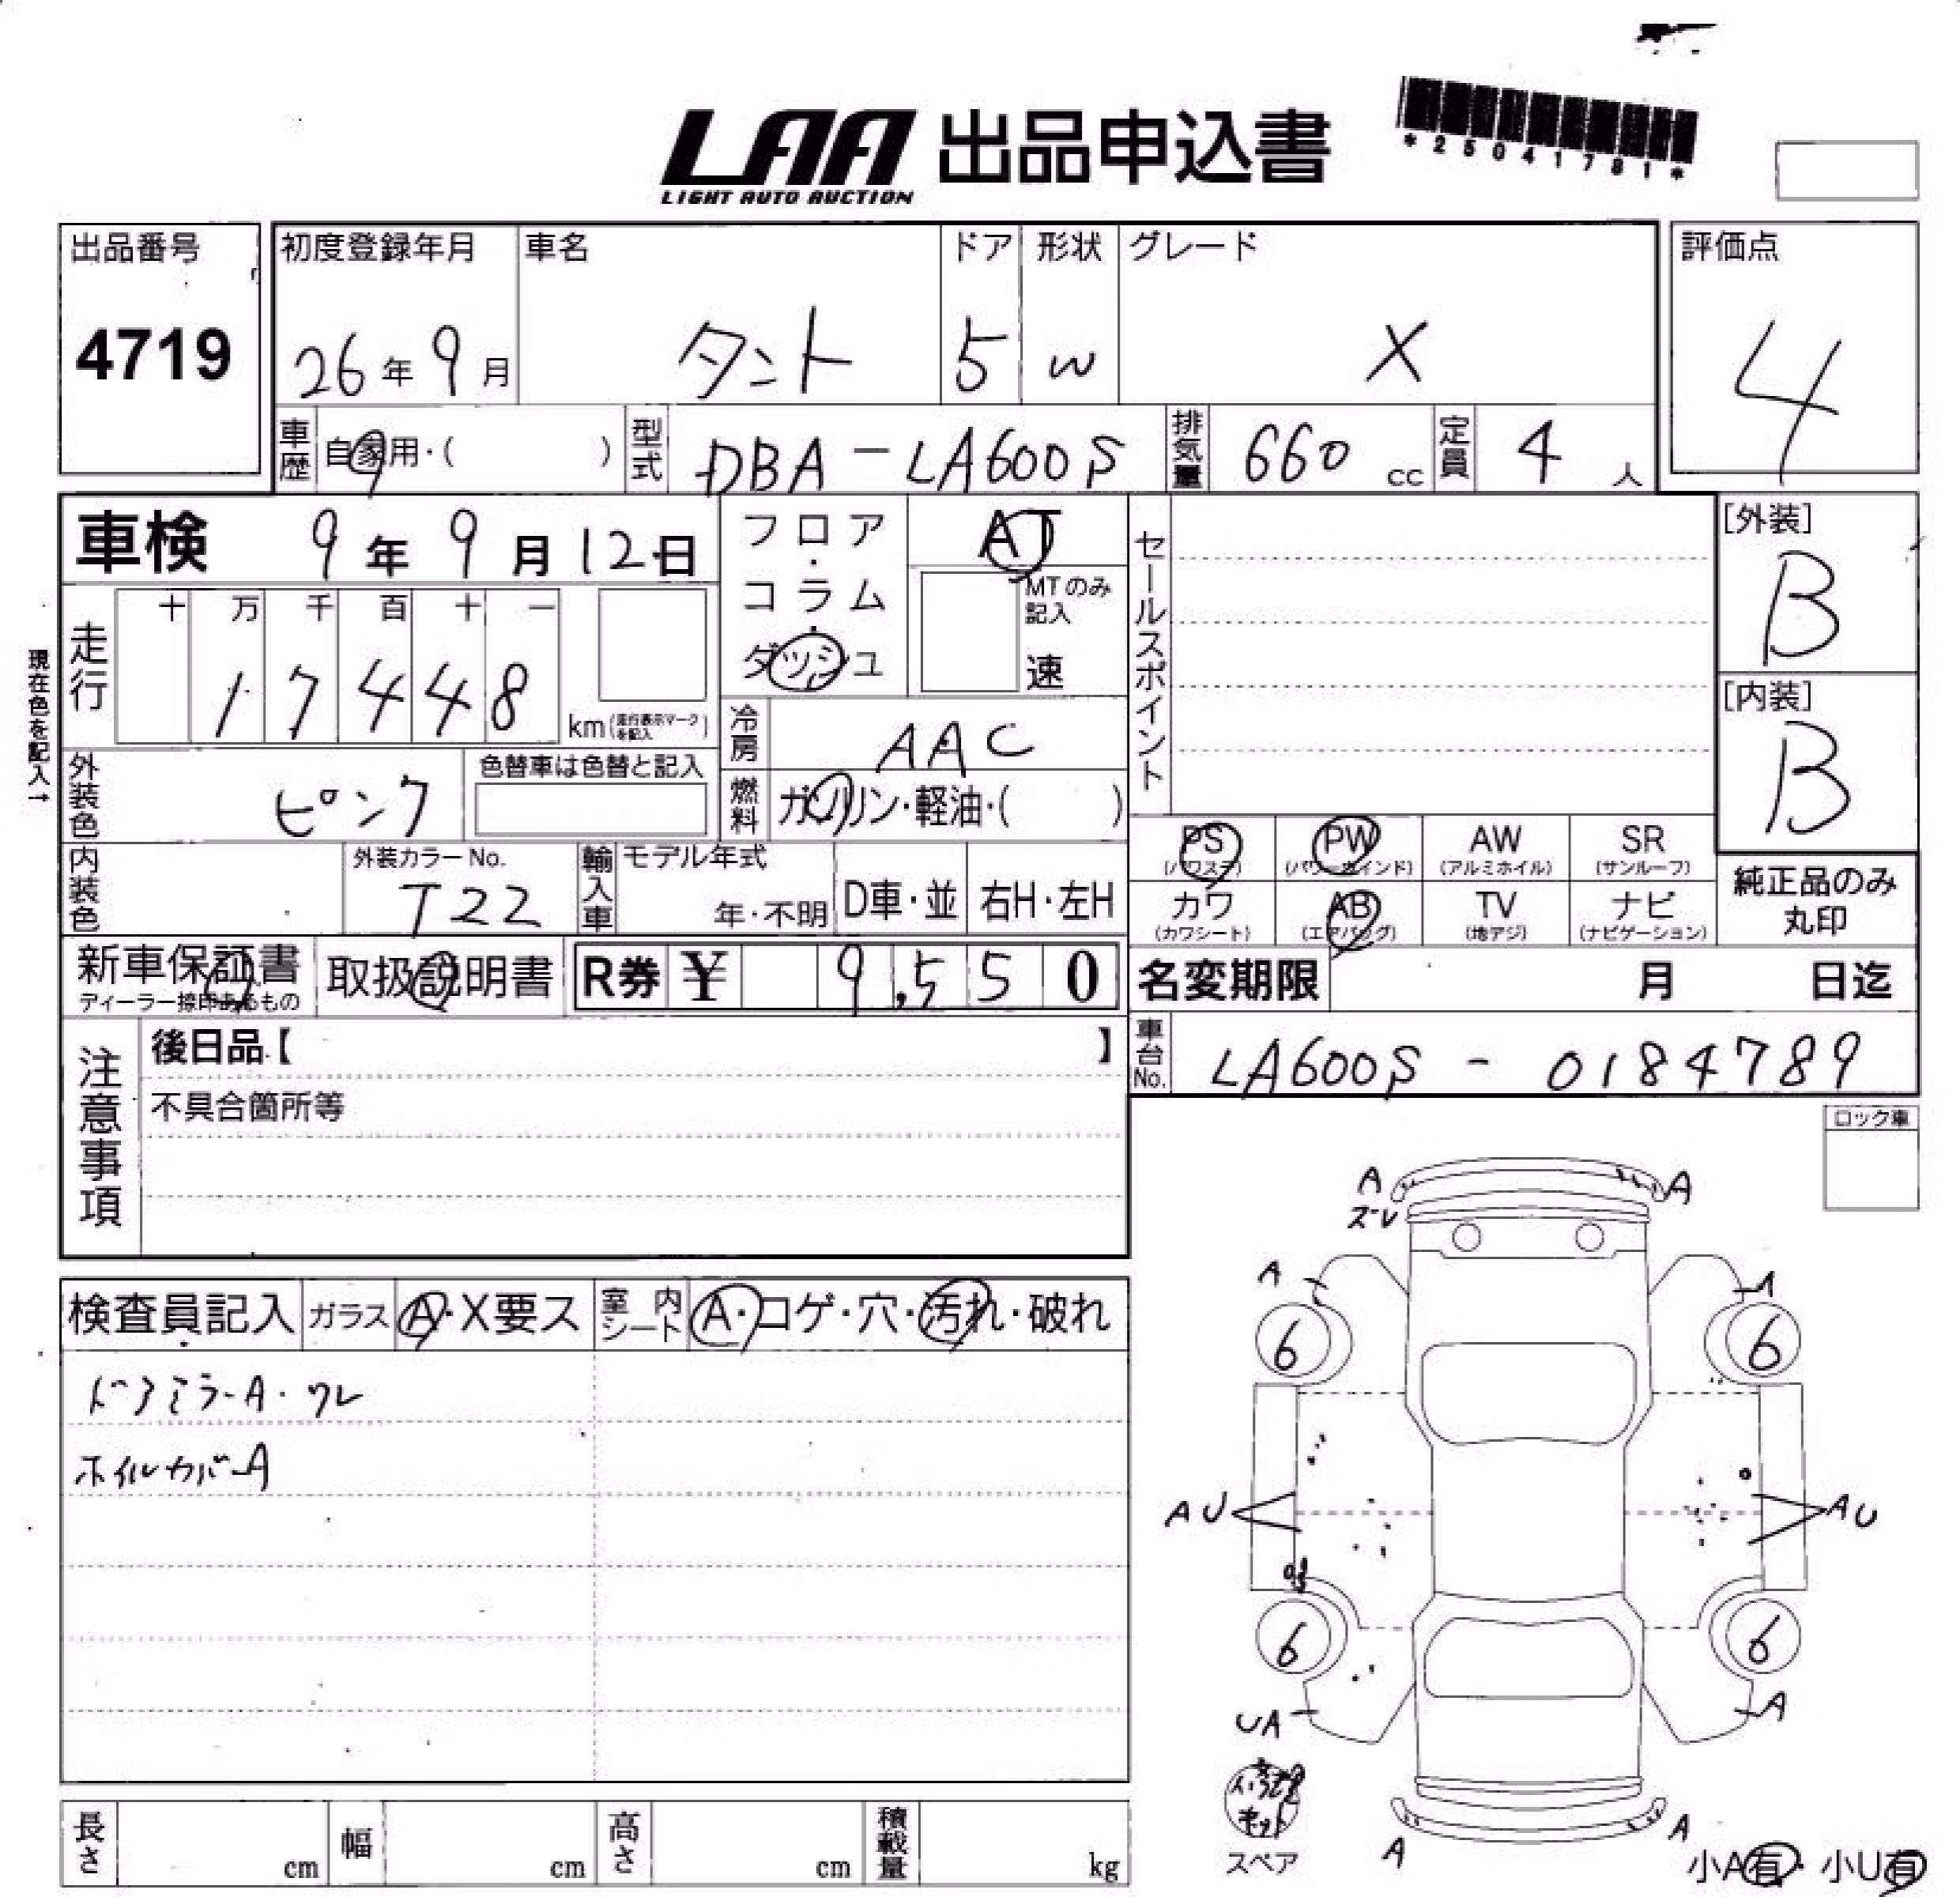 LAA 出品申込書
LIGHT AUTO AUCTION
*25041781*
出品番号 初度登録年月 車名 ドア 形状 グレード 評価点
4719 26年9月 タント 5 W X 4
車歴 自家用・( ) 型式 DBA-LA600S 排気量 660 cc 定員 4 人
車検 9年9月12日 フロア・コラム・ダッシュ AT セールスポイント [外装]
B
MTのみ記入 速
走行 十 万 千 百 十 一
17448 km(走行表示マークを記入)
[内装]
B
現在色を記入→
冷房 AAC
外装色 ピンク 色替車は色替と記入 燃料 ガソリン・軽油・( )
PS AB
(パワステ)
PW
(パワーウインド)
AW
(アルミホイル)
SR
(サンルーフ)
カワ
(カワシート)
AB
(エアバッグ)
TV
(地デジ)
ナビ
(ナビゲーション)
純正品のみ
丸印
内装色 外装カラーNo. T22 輸入車 モデル年式 年・不明 D車・並 右H・左H
新車保証書 取扱説明書 R券 ¥ 9,550 名変期限 月 日迄
ディーラー捺印あるもの
車台No. LA600S - 0184789
注意事項 後日品【 】
不具合箇所等
ロック車
検査員記入 ガラス A・X要ス 室内シート A・コゲ・穴・汚れ・破れ
ドアミラーA・ワレ
ホイルカバーA
A A
ズレ
A A
6 6
AU AU
6 6
UA A
キット
スペア
A A
小A有・小U有
長さ cm 幅 cm 高さ cm 積載量 kg